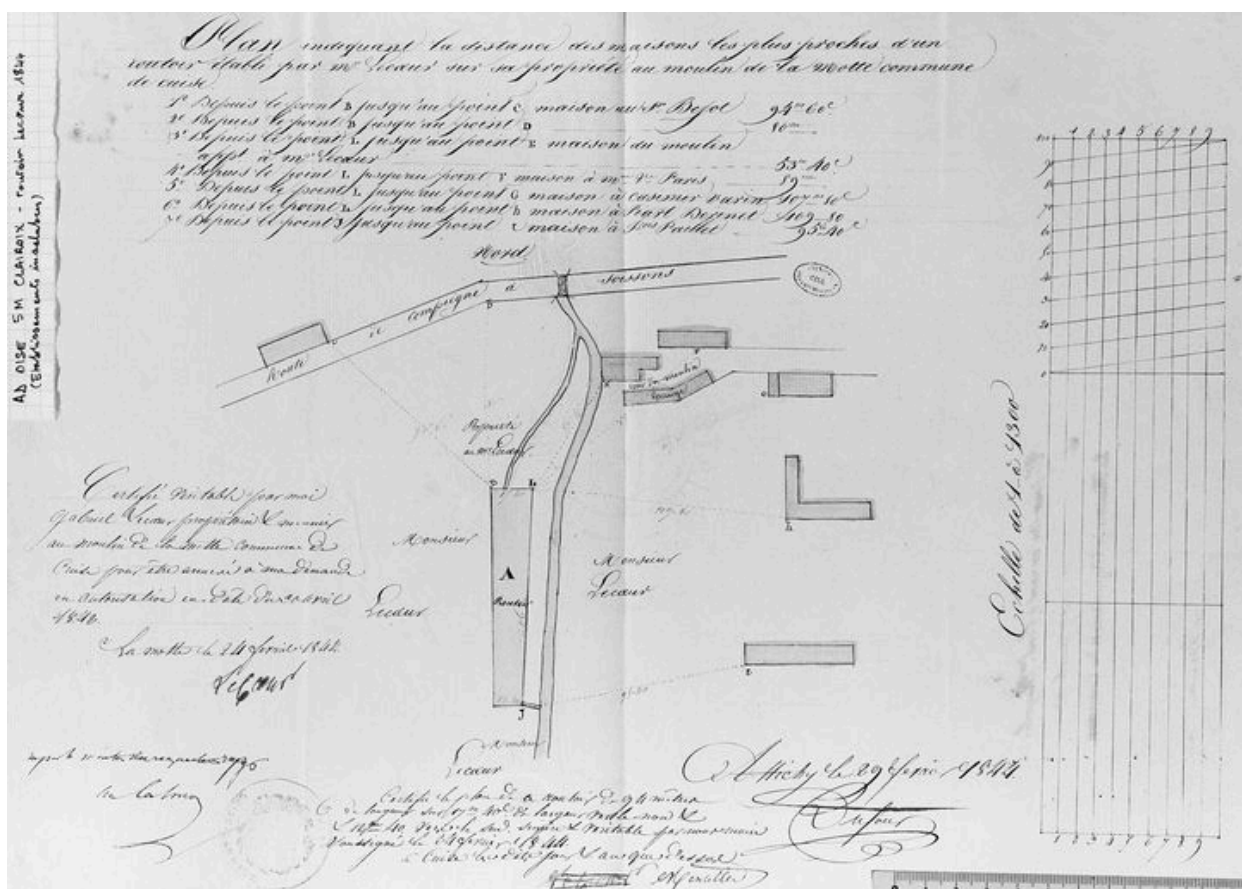 AD OISE 5M CLAIROIX - routoir Lecoeur 1844
(Etablissements insalubres)
Plan indiquant la distance des maisons les plus proches d'un
routoir établi par mr Lecœur sur sa propriété au moulin de la motte commune
de cuise
1º Depuis le point B jusqu'au point C maison au Sr 94m 60c
2º Depuis le point B jusqu'au point D 80m
3º Depuis le point L jusqu'au point E maison du moulin
appt à mr Lecœur 53m 40c
4º Depuis le point L jusqu'au point F maison à mr Vr Paris 89m
5º Depuis le point L jusqu'au point G maison à Casimir Varin 107m 10c
6º Depuis le point L jusqu'au point h maison à 109 50
7º Depuis le point J jusqu'au point i maison à Paillet 95m 40c
Nord
Route de Compiegne à Soissons
cour du moulin
Propriété
de mr Lecœur
Monsieur
Lecœur
A
Routoir
Monsieur
Lecœur
J
Monsieur
Lecœur
Certifié véritable par moi
Gabriel Lecœur propriétaire & meunier
au moulin de la motte commune de
Cuise pour être annexé à ma demande
en autorisation en date du avril
184
La motte le 24 février 1844
Lecœur
Certifié le plan de ce routoir de 94 mètres
de longueur sur 17m 40c de largeur vers le nord &
vers le sud, sincère & véritable par
le 24 février 1844
à Cuise les date jour & an que dessus
Attichy le 29 février 1844
Dufour
Echelle de 1 à 1300
1 2 3 4 5 6 7 8 9
90
80
70
60
50
40
30
20
10
0
1 2 3 4 5 6 7 8 9